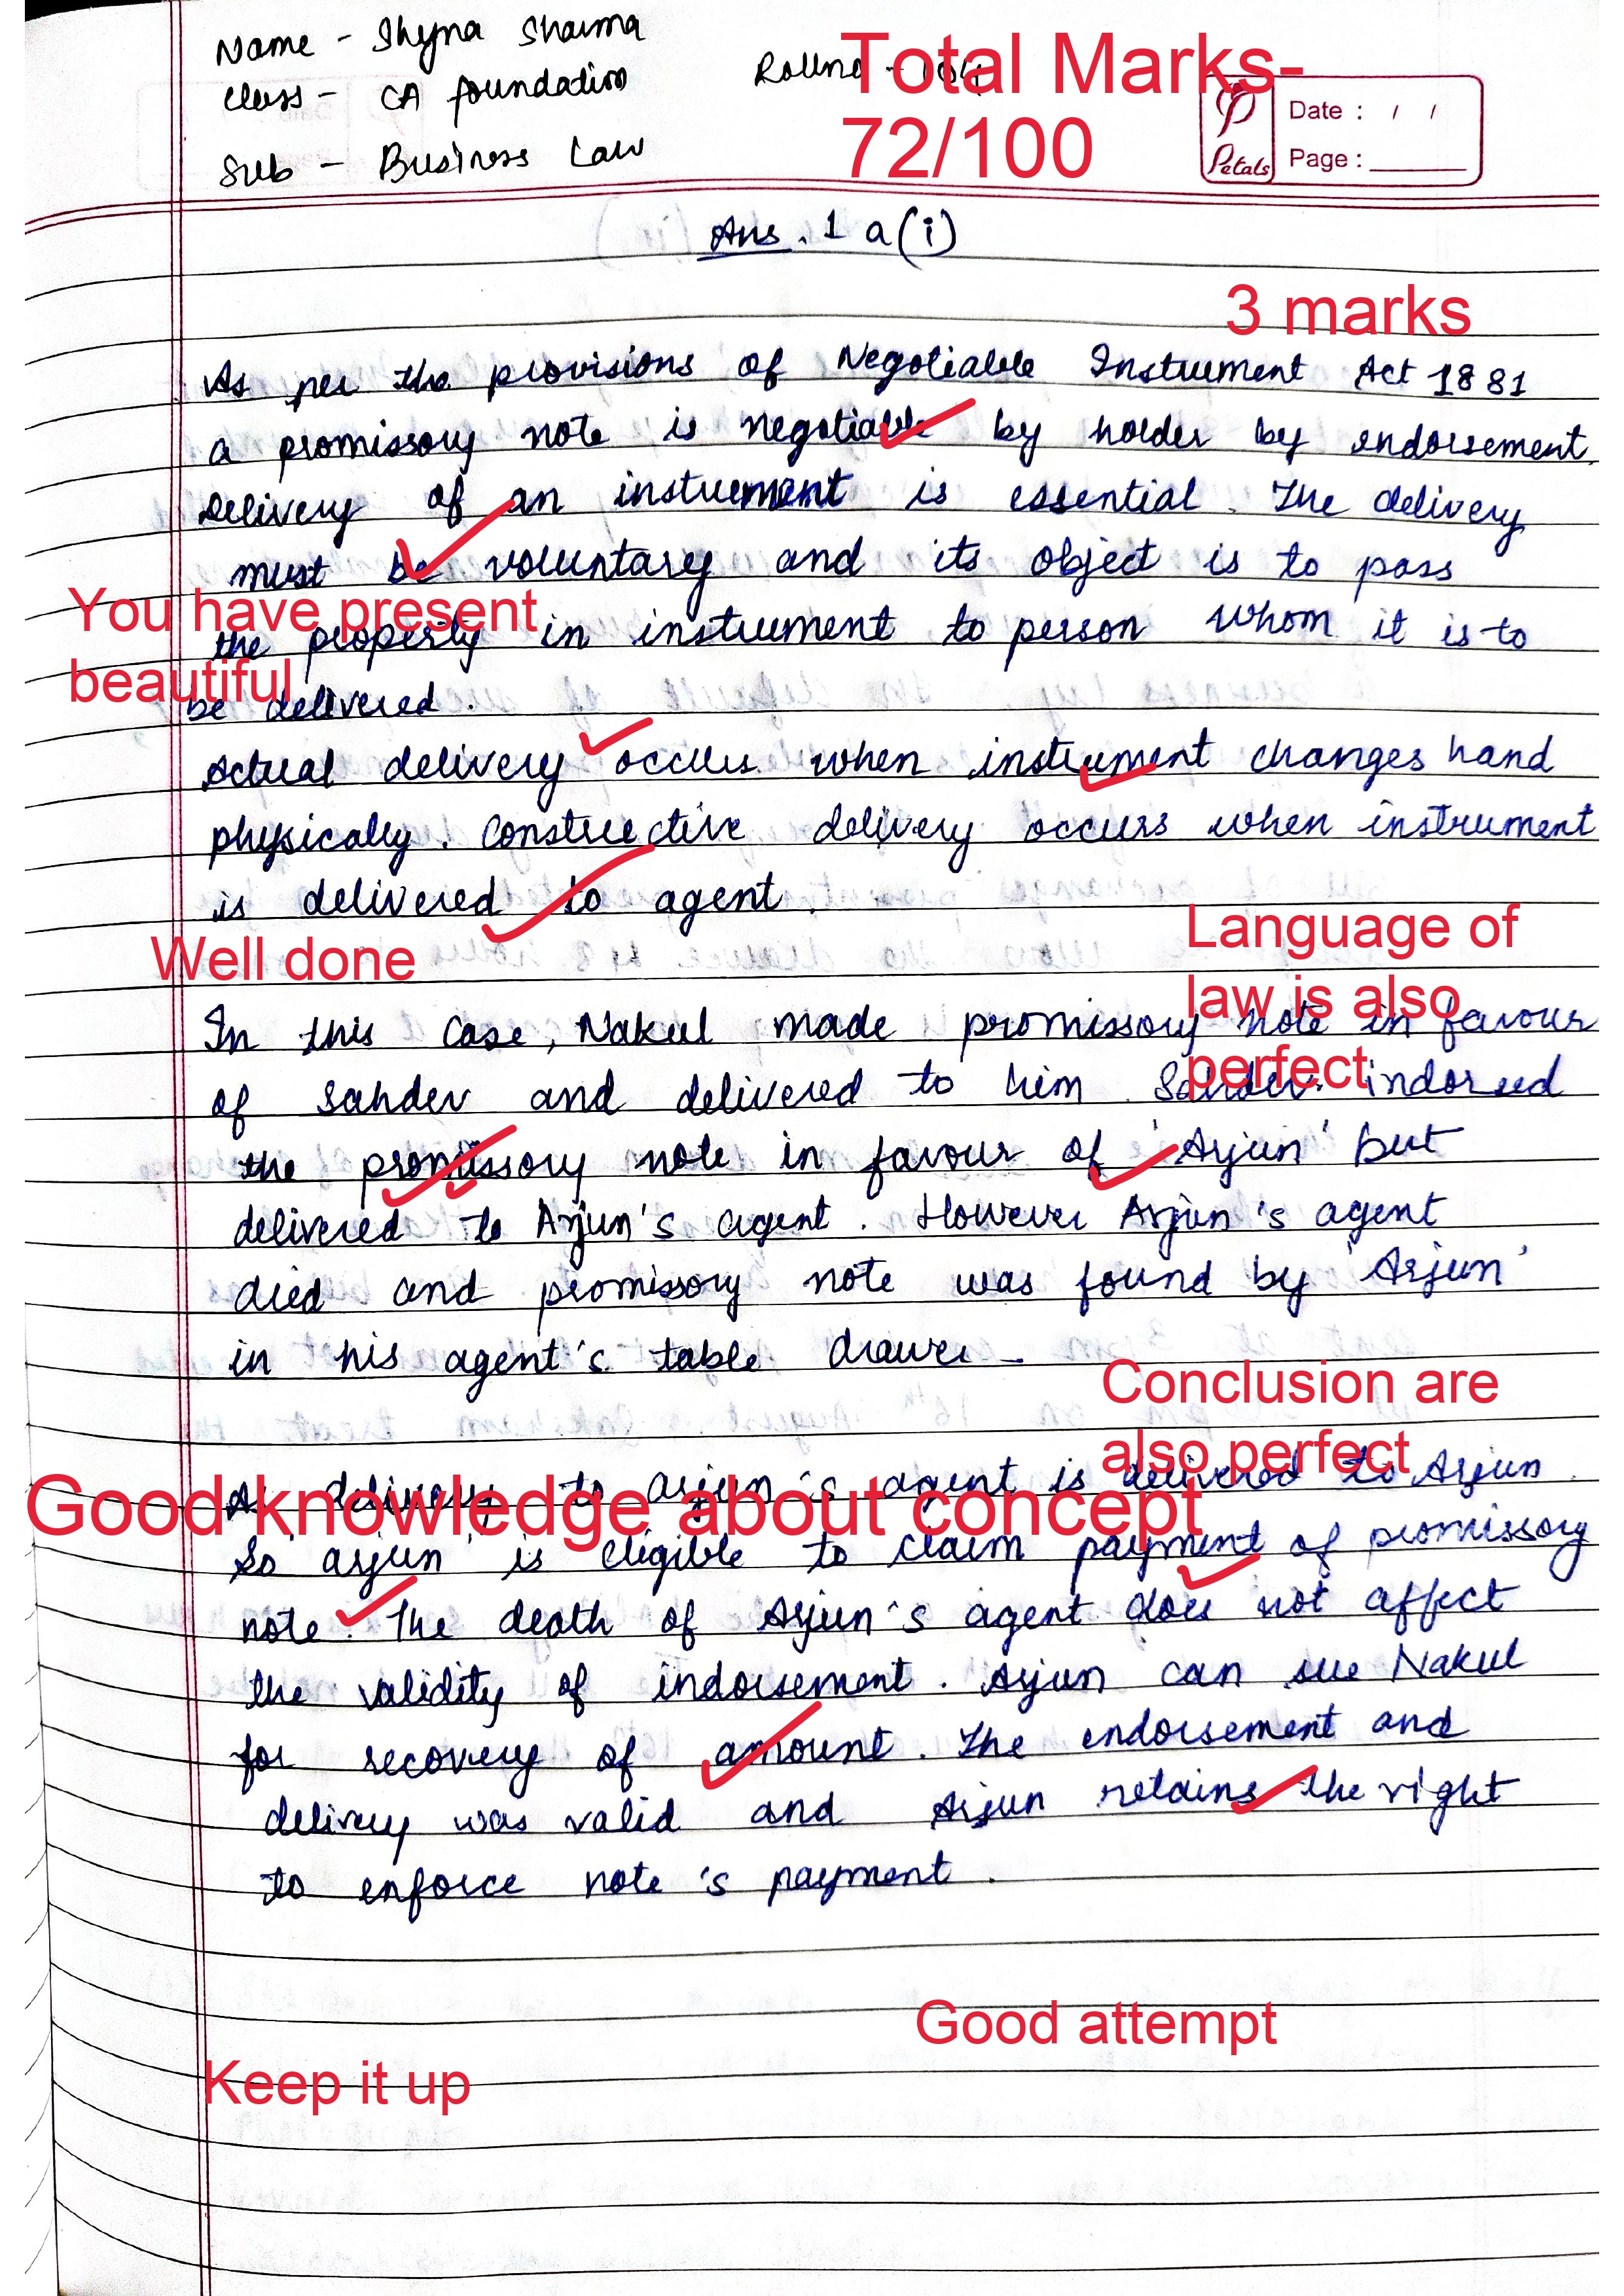 Name - Ihyna Sharma
Total Marks-
Class - CA foundation
Rollno -
72/100
Date : / /
Sub - Business Law
Petals
Page :
Ans. 1 a(i)
3 marks
As per the provisions of Negotiable Instrument Act 1881
a promissory note is negotiable by holder by endorsement.
Delivery of an instrument is essential. The delivery
must be voluntary and its object is to pass
You have present
the property in instrument to person whom it is to
beautiful
be delivered.
Actual delivery occurs when instrument changes hand
physically. Constructive delivery occurs when instrument
is delivered to agent.
Well done
Language of
law is also
In this Case, Nakul made promissory note in favour
perfect
of Sahdev and delivered to him. Sahdev indorsed
the promissory note in favour of 'Arjun' but
delivered to Arjun's agent. However Arjun's agent
died and promissory note was found by 'Arjun'
in his agent's table drawer
Conclusion are
also perfect
As delivery to arjun's agent is delivered to Arjun.
Good knowledge about concept
So 'arjun' is eligible to claim payment of promissory
note. The death of Arjun's agent does not affect
the validity of indorsement. Arjun can sue Nakul
for recovery of amount. The endorsement and
delivery was valid and Arjun retains the right
to enforce note's payment.
Good attempt
Keep it up